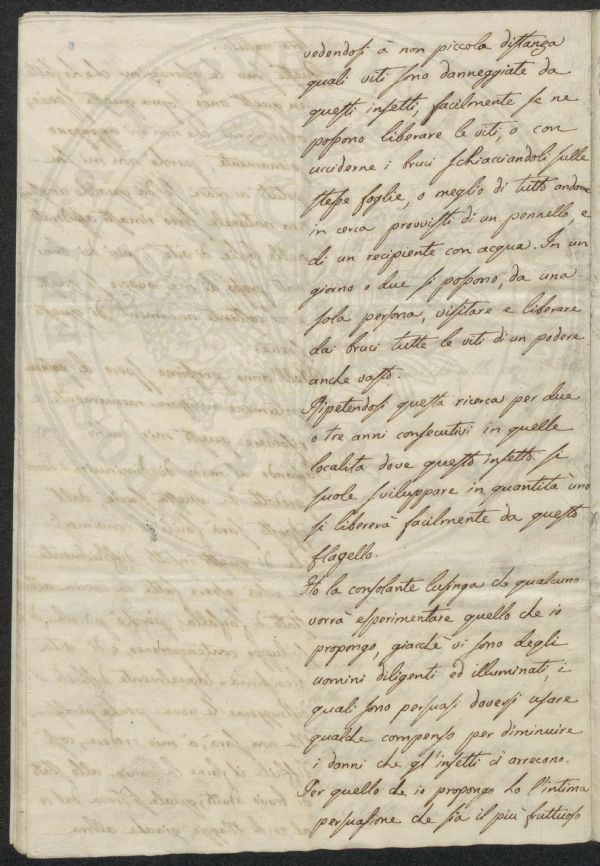 vedendosi à non piccola distanza
quali viti sono danneggiate da
questi insetti, facilmente se ne
possono liberare le viti, o con
ucciderne i bruci schiacciandoli sulle
stesse foglie, o meglio di tutto andare
in cerca provvisti di un pennello, e
di un recipiente con acqua. In un
giorno o due si possono, da una
sola persona, visitare e liberare
dai bruci tutte le viti di un podere
anche vasto.
Ripetendosi questa ricerca per due
o tre anni consecutivi in quelle
località dove questo insetto si
suole sviluppare in quantità uno
si libererà facilmente da questo
flagello.
Ho la consolante lusinga che qualcuno
vorrà esperimentare quello che io
propongo, giacchè vi sono degli
uomini diligenti ed illuminati, i
quali sono persuasi doversi usare
qualche compenso per diminuire
i danni che gl'insetti ci arrecono.
Per quello che io propongo ho l'intima
persuasione che sia il più fruttuoso